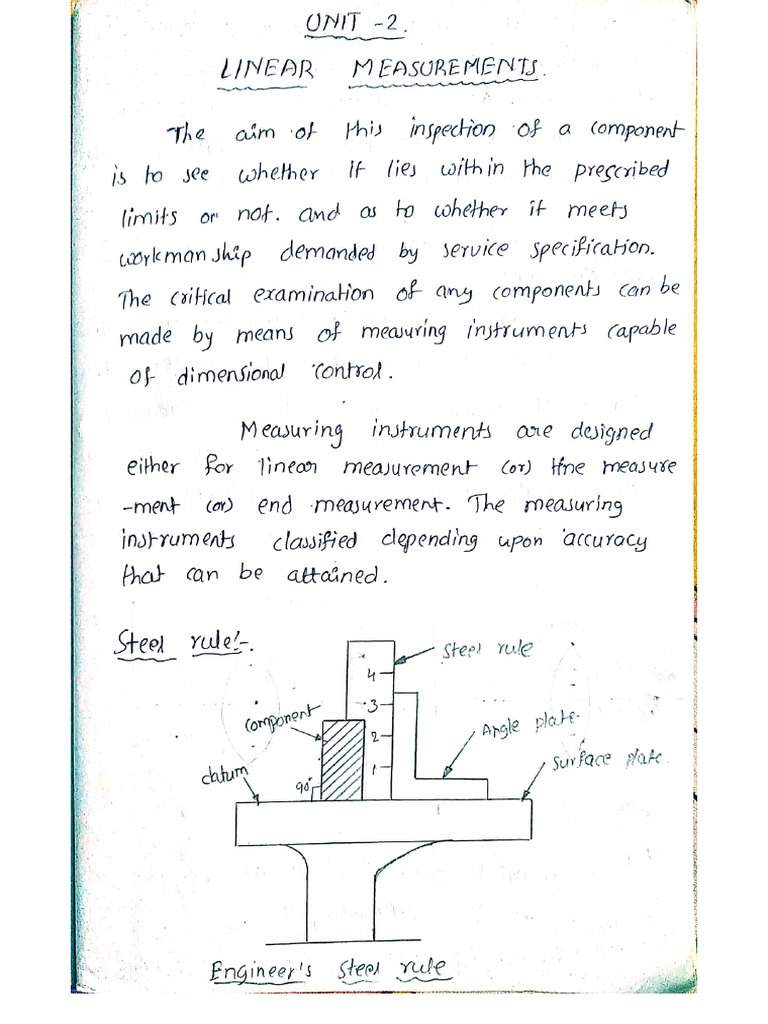 UNIT -2.
LINEAR MEASUREMENTS.
The aim of this inspection of a component
is to see whether it lies within the prescribed
limits or not. and as to whether it meets
workman ship demanded by service specification.
The critical examination of any components can be
made by means of measuring instruments capable
of dimensional control.
Measuring instruments are designed
either for linear measurement (or) line measure
-ment (or) end measurement. The measuring
instruments classified depending upon accuracy
that can be attained.
Steel rule:-
Steel rule
4
3
component
Angle plate.
2
Surface plate.
datum
1
90°
Engineer's steel rule